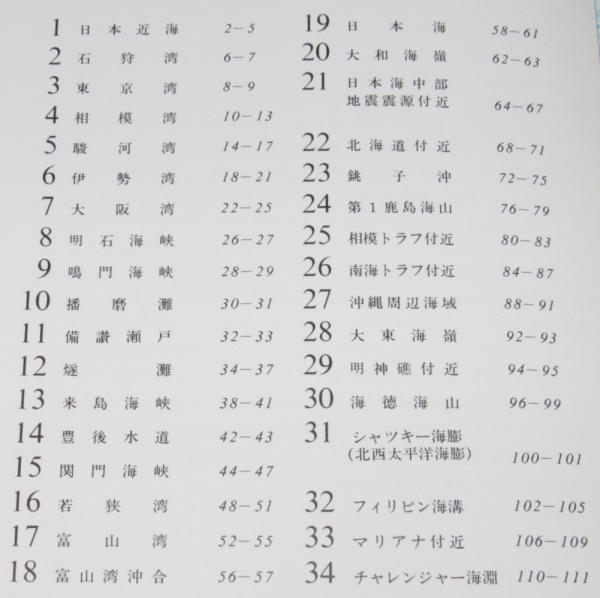 1 日本近海 2-5
2 石狩湾 6-7
3 東京湾 8-9
4 相模湾 10-13
5 駿河湾 14-17
6 伊勢湾 18-21
7 大阪湾 22-25
8 明石海峡 26-27
9 鳴門海峡 28-29
10 播磨灘 30-31
11 備讃瀬戸 32-33
12 燧灘 34-37
13 来島海峡 38-41
14 豊後水道 42-43
15 関門海峡 44-47
16 若狭湾 48-51
17 富山湾 52-55
18 富山湾沖合 56-57
19 日本海 58-61
20 大和海嶺 62-63
21 日本海中部
地震震源付近 64-67
22 北海道付近 68-71
23 銚子沖 72-75
24 第1鹿島海山 76-79
25 相模トラフ付近 80-83
26 南海トラフ付近 84-87
27 沖縄周辺海域 88-91
28 大東海嶺 92-93
29 明神礁付近 94-95
30 海徳海山 96-99
31 シャツキー海膨
(北西太平洋海膨) 100-101
32 フィリピン海溝 102-105
33 マリアナ付近 106-109
34 チャレンジャー海淵 110-111